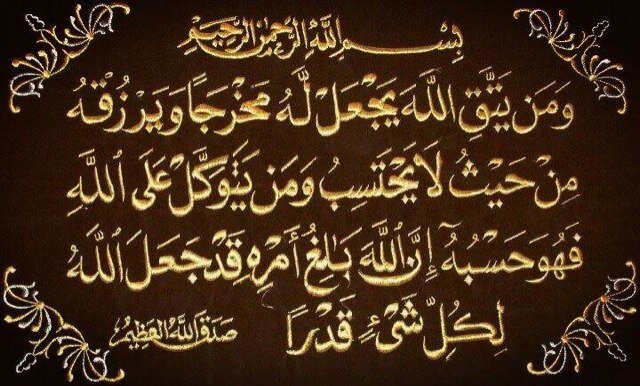 بِسْمِ اللَّهِ الرَّحْمَٰنِ الرَّحِيْمِ
وَمَن يَتَّقِ اللَّهَ يَجْعَل لَّهُ مَخْرَجًا وَيَرْزُقْهُ
مِنْ حَيْثُ لَا يَحْتَسِبُ وَمَن يَتَوَكَّلْ عَلَى اللَّهِ
فَهُوَ حَسْبُهُ إِنَّ اللَّهَ بَالِغُ أَمْرِهِ قَدْ جَعَلَ اللَّهُ
لِكُلِّ شَيْءٍ قَدْرًا صَدَقَ اللَّهُ العَظِيْمُ